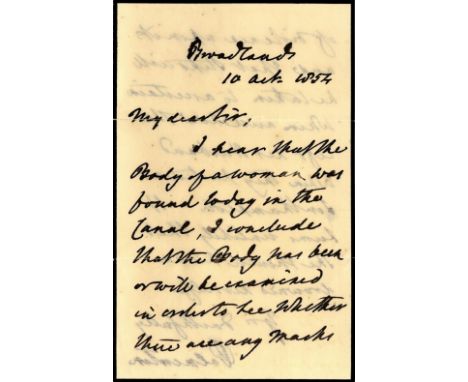 Broadlands
10 Oct 1854
My dear Sir,
I hear that the
Body of a woman was
found today in the
Canal, I conclude
that the Body has been
or will be examined
in order to see whether
there are any marks